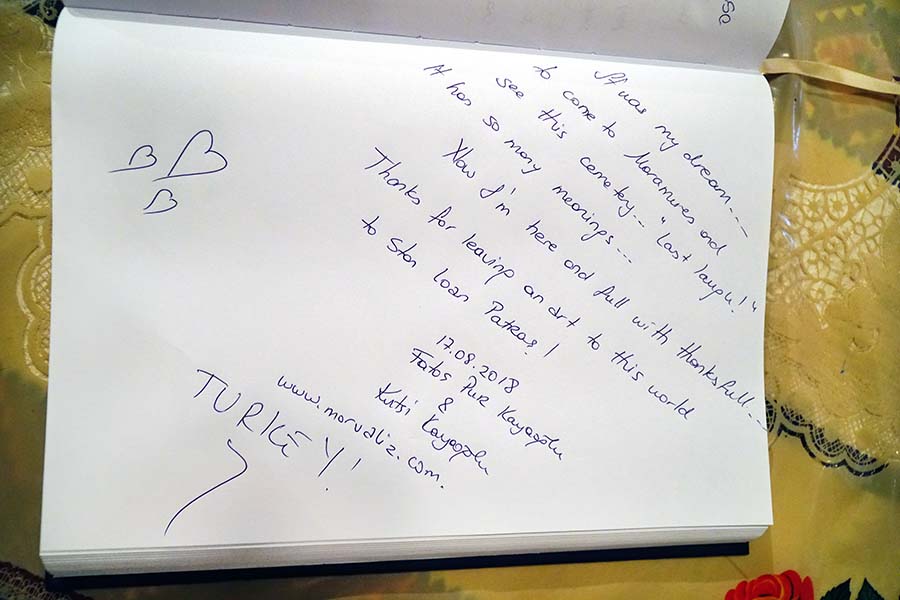 It was my dream....
to come to Maramures and
see this cemetery... "last laugh!"
It has so many meanings...
Now I'm here and full with thanksfull...
Thanks for leaving an art to this world
to Stan Ioan Patras!
17.08.2018
Fatos Pur Kayaoglu
&
Kutsi Kayaoglu
www.morvaliz.com.
TURKEY!